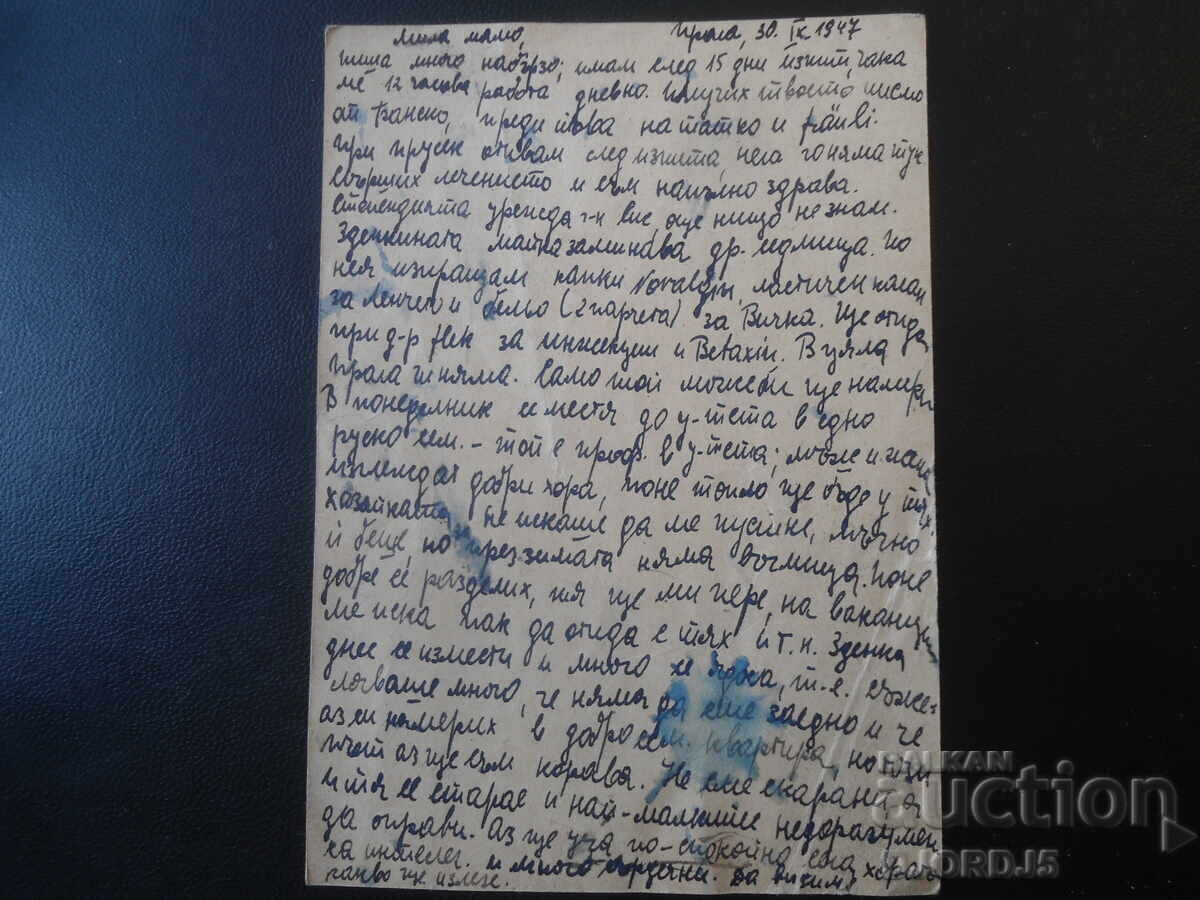 Мила мамо, Прага, 30. IX. 1947
пиша много набързо; имам след 15 дни изпит, чака
ме 12 часова работа дневно. Получих твоето писмо
от Банско, преди това на татко и fräuli.
При Прусек отивам след изпита, него го няма тук.
Свърших лечението и съм напълно здрава.
Стипендията урежда г-н Вис, още нищо не знам.
Зденкината майка заминава др. седмица. По
нея изпращам капки Novalgin, ластичен колан
за Ленчето и бельо (2 парчета) за Вичка. Ще отида
при д-р Flek за инжекции и Betaxin. В цяла
Прага няма. Само той може би ще намери
В понеделник се местя до у-тета в едно
руско сем. – той е проф. в у-тета; мъж и жена
изглеждат добри хора, поне топло ще бъде у тях.
Хазяйката не искаше да ме пусне, мъчно
ѝ беше, но през зимата няма въглища. Поне
добре се разделих, тя ще ми пере, на ваканции
ме иска пак да отида с тях и т.н. Зденка
днес се измести и много се ядоса, т.е. съжа=
ляваше много, че няма да сме заедно и че
аз си намерих в добро сем. квартира, но този
път аз ще съм корава. Не сме скарани, а
и тя се старае и най-малките недоразумен.
да оправи. Аз ще уча по-спокойна сега, хората
са интелег. и много сърдечни. Да видим
какво ще излезе.
BALKAN
auction
DJORDJ5